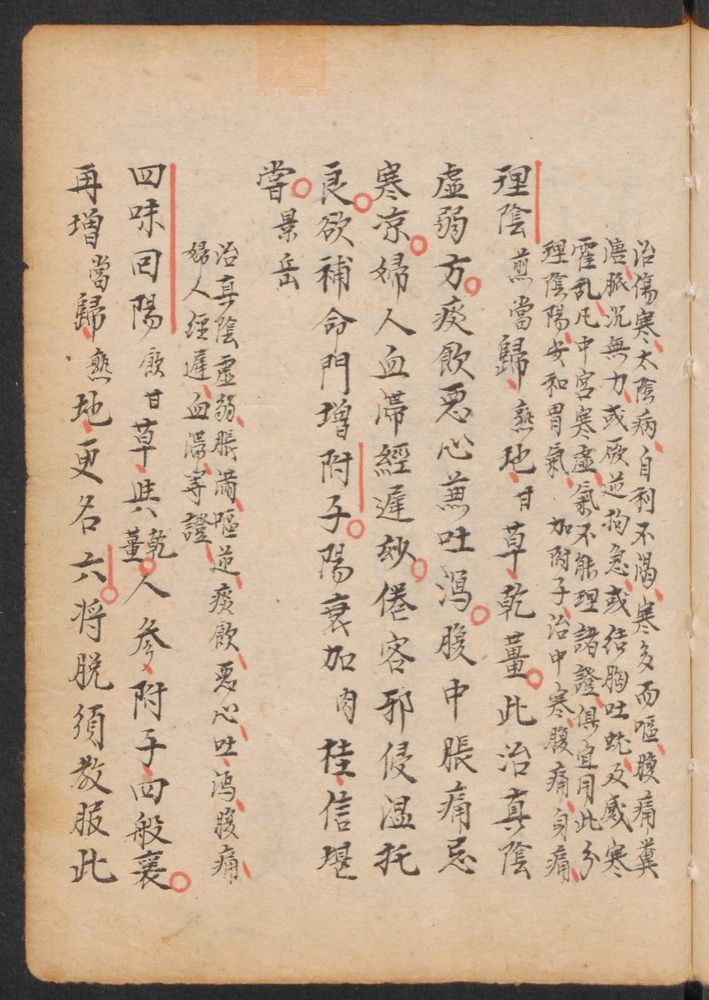 治傷寒太陰病自利不渴寒多而嘔腹痛糞
溏脈沉無力或厥逆拘急或结胸吐蚘及感寒
霍乱凡中宮寒虛氣不能理諸證俱宜用此分
理陰陽安和胃氣 加附子治中寒腹痛身痛
理陰煎當歸熟地甘草乾薑此治真陰
虛弱方痰飲惡心兼吐瀉腹中脹痛忌
寒凉婦人血滯經遲玅倦客邪侵温托
良欲補命門增附子陽衰加肉桂信堪
嘗景岳
治真陰虛弱脹滿嘔逆痰飲惡心吐瀉腹痛
婦人經遲血滯等證
四味囘陽飲甘草與乾薑人參附子四般襄
再增當歸熟地更名六将脱須教服此